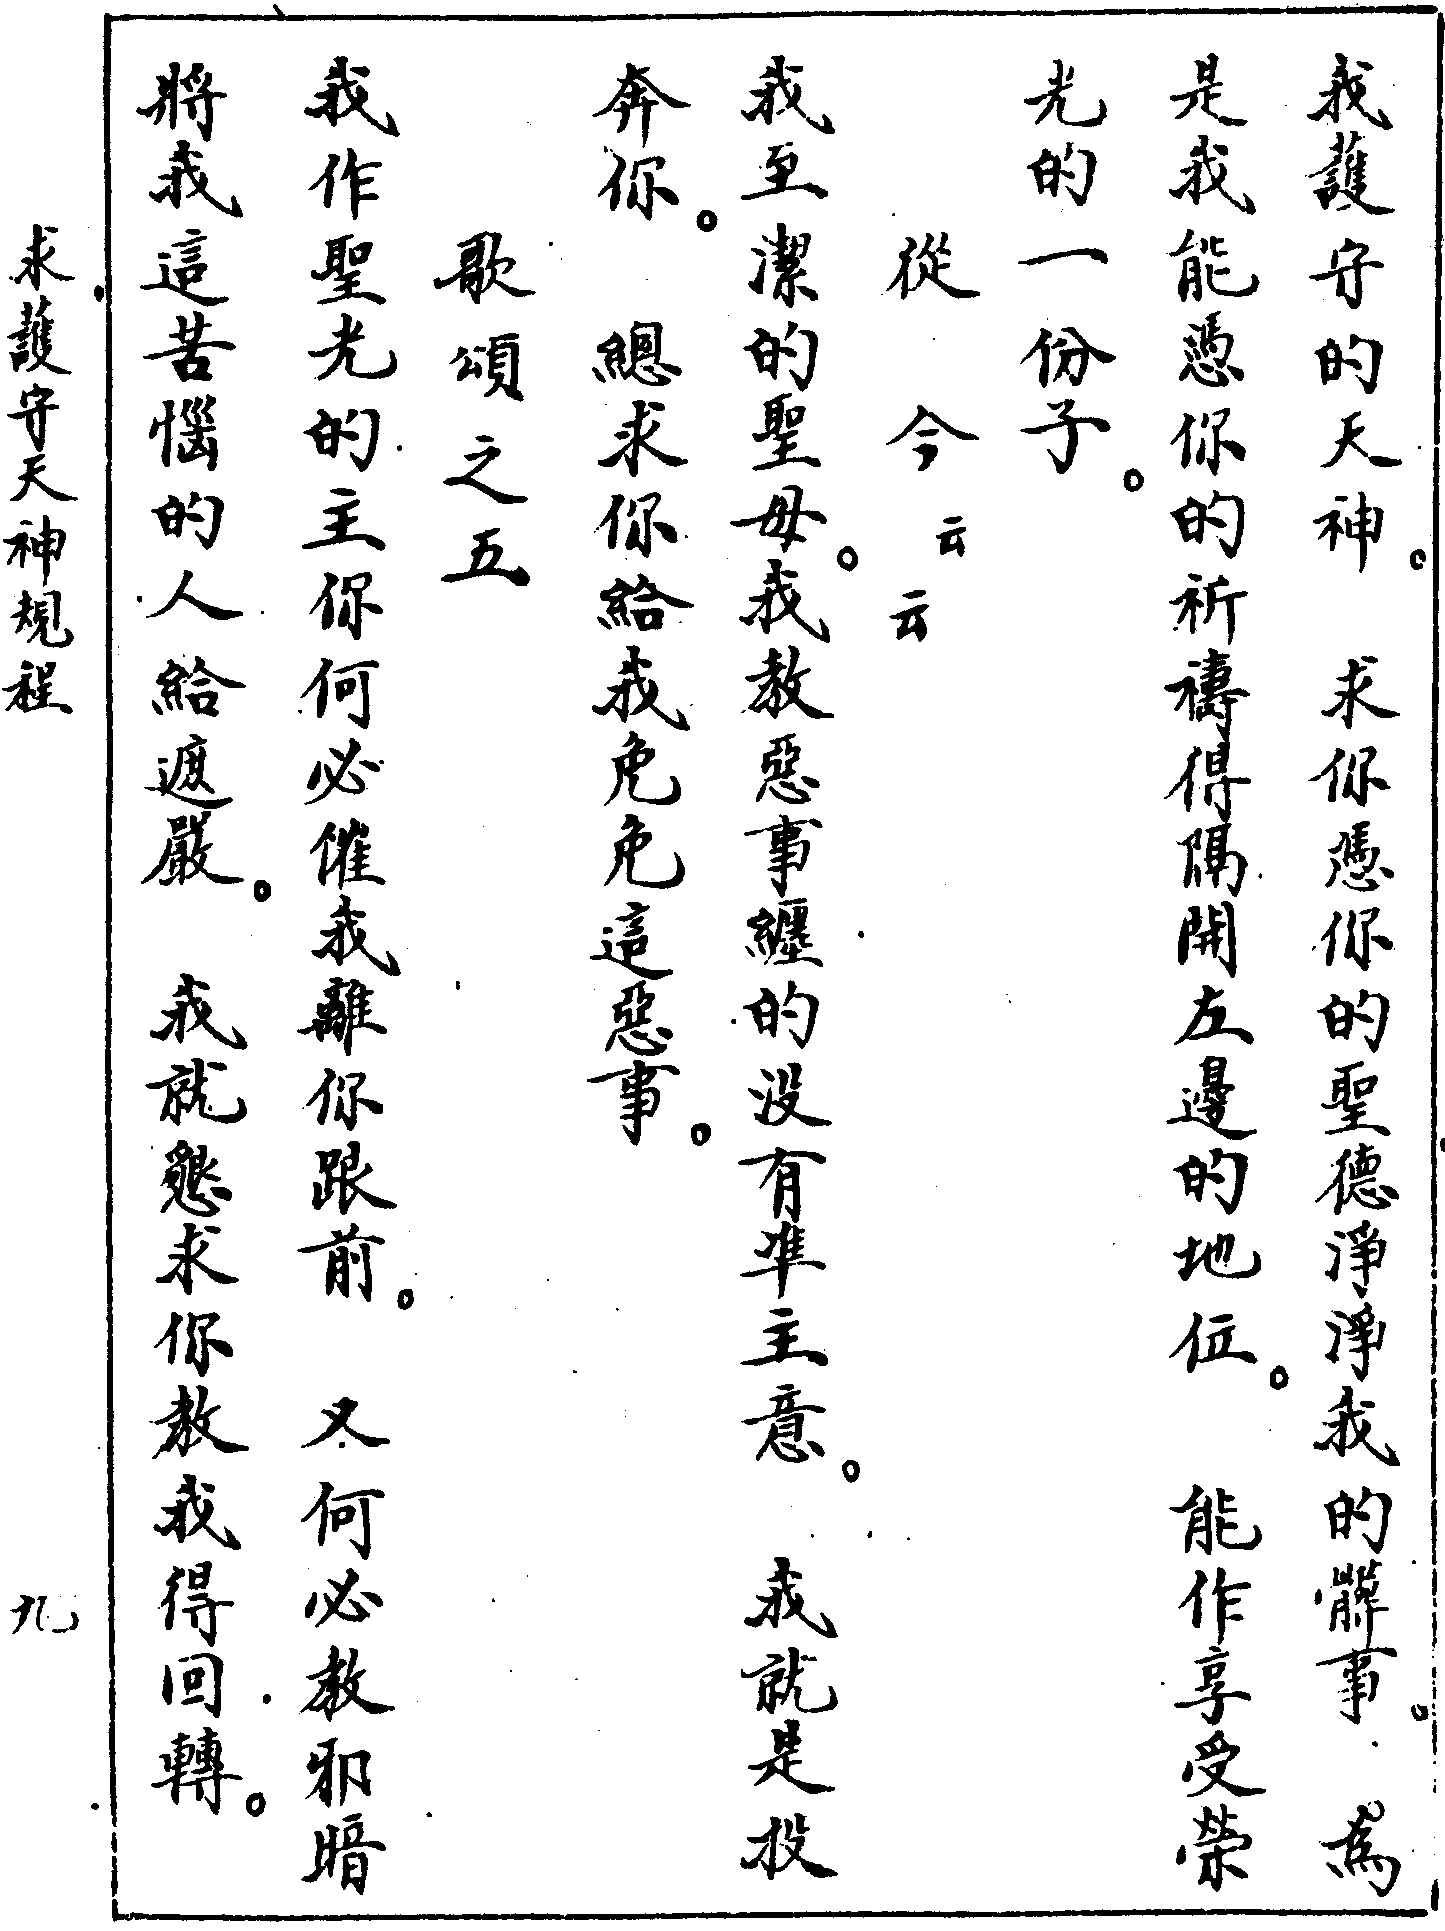 我護守的天神。　求你憑你的聖德淨淨我的髒事。為
是我能憑你的祈禱得隔開左邊的地位。　能作享受榮
光的一份子。
從今云云
我至潔的聖母。我教惡事纏的没有凖主意。　我就是投
奔你。　總求你給我免免這惡事。
歌頌之五
我作聖光的主你何必催我離你跟前。　又何必教邪暗
將我這苦惱的人給遮嚴。　我就懇求你教我得回轉。
求護守天神規程
九